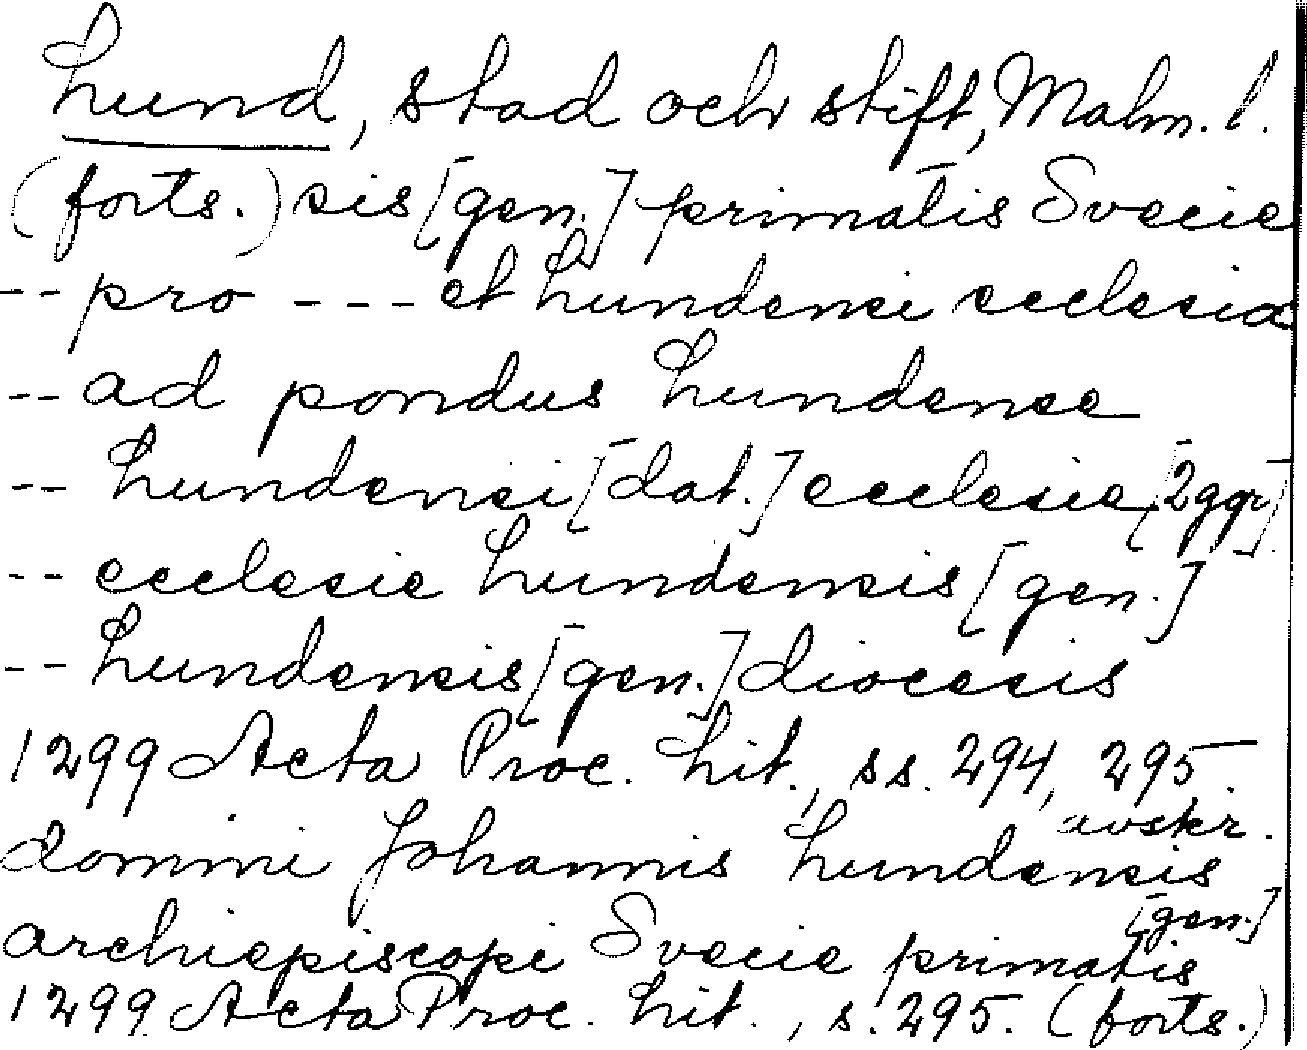 Lund, stad och stift, Malm. l.
(forts.) sis [gen.] primatis Svecie
-- pro --- et Lundensi ecclesia
-- ad pondus Lundense
-- Lundensi [dat.] ecclesie [2ggr]
-- ecclesie Lundensis [gen.]
-- Lundensis [gen.] diocesis
1299 Acta Proc. Lit., ss. 294, 295
avskr.
domini Johannis Lundensis
[gen.]
archiepiscopi Svecie primatis
1299 Acta Proc. Lit., s. 295. (forts.)